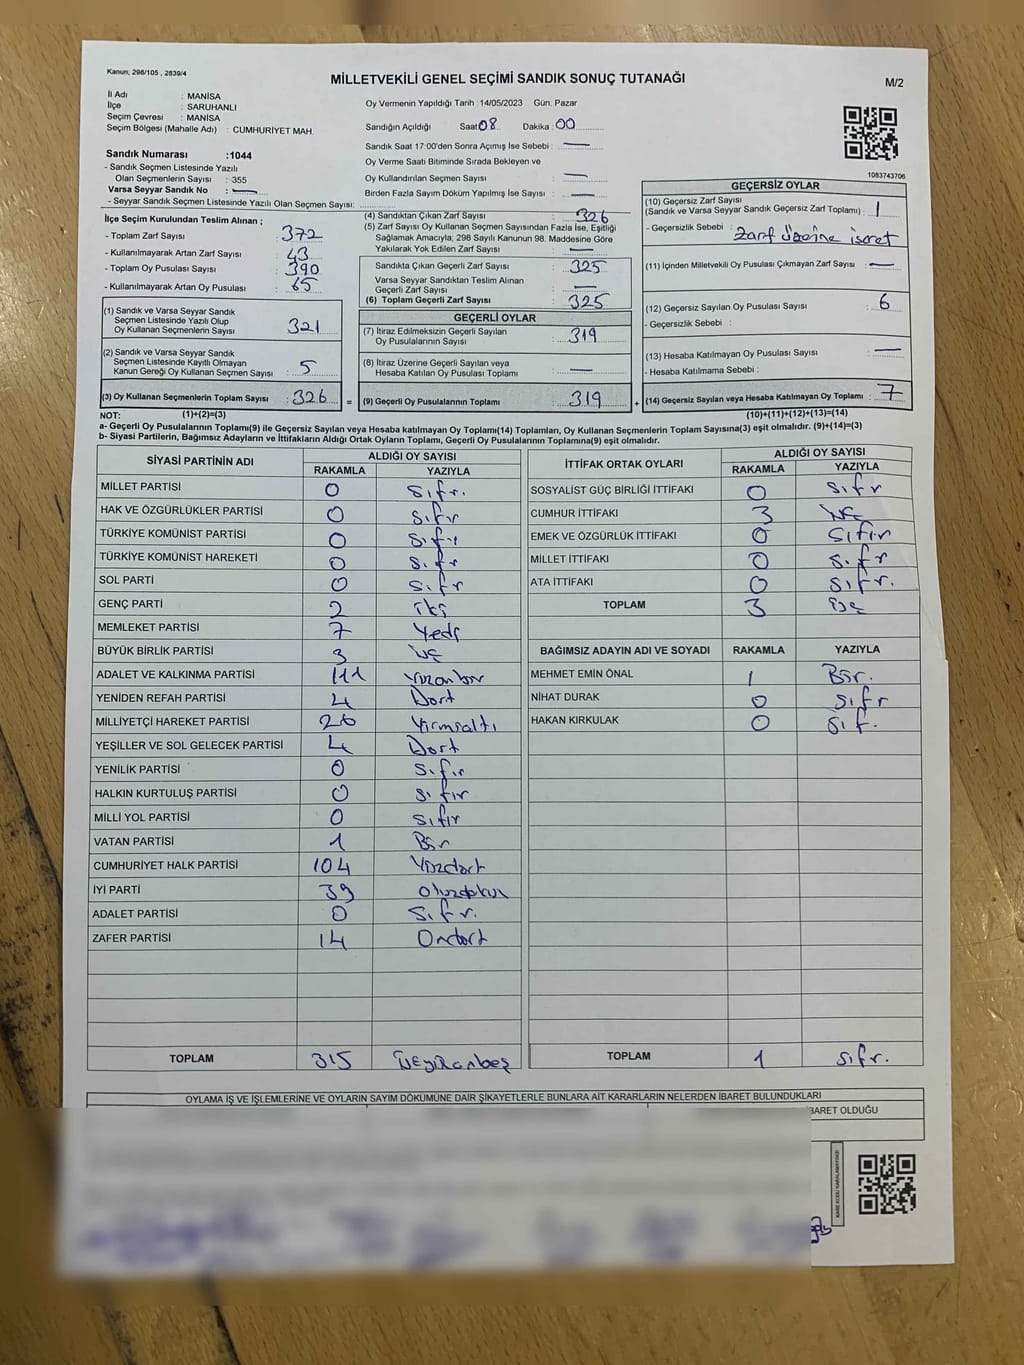 Kanun; 298/105 , 2839/4
MİLLETVEKİLİ GENEL SEÇİMİ SANDIK SONUÇ TUTANAĞI
M/2
İl Adı : MANİSA
İlçe : SARUHANLI
Seçim Çevresi : MANİSA
Seçim Bölgesi (Mahalle Adı) : CUMHURİYET MAH.
Oy Vermenin Yapıldığı Tarih : 14/05/2023 Gün: Pazar
Sandığın Açıldığı Saat 08 Dakika : 00
Sandık Saat 17:00'den Sonra Açımış İse Sebebi : —
Oy Verme Saati Bitiminde Sırada Bekleyen ve
Oy Kullandırılan Seçmen Sayısı : —
Birden Fazla Sayım Döküm Yapılmış İse Sayısı : —
Sandık Numarası :1044
- Sandık Seçmen Listesinde Yazılı
Olan Seçmenlerin Sayısı : 355
Varsa Seyyar Sandık No : —
- Seyyar Sandık Seçmen Listesinde Yazılı Olan Seçmen Sayısı:
1083743706
İlçe Seçim Kurulundan Teslim Alınan ;
- Toplam Zarf Sayısı : 372
- Kullanılmayarak Artan Zarf Sayısı : 43
- Toplam Oy Pusulası Sayısı : 390
- Kullanılmayarak Artan Oy Pusulası : 65
(1) Sandık ve Varsa Seyyar Sandık
Seçmen Listesinde Yazılı Olup
Oy Kullanan Seçmenlerin Sayısı : 321
(2) Sandık ve Varsa Seyyar Sandık
Seçmen Listesinde Kayıtlı Olmayan
Kanun Gereği Oy Kullanan Seçmen Sayısı : 5
(3) Oy Kullanan Seçmenlerin Toplam Sayısı : 326 =
(4) Sandıktan Çıkan Zarf Sayısı : 326
(5) Zarf Sayısı Oy Kullanan Seçmen Sayısından Fazla İse, Eşitliği
Sağlamak Amacıyla; 298 Sayılı Kanunun 98. Maddesine Göre
Yakılarak Yok Edilen Zarf Sayısı : —
Sandıkta Çıkan Geçerli Zarf Sayısı : 325
Varsa Seyyar Sandıktan Teslim Alınan
Geçerli Zarf Sayısı : —
(6) Toplam Geçerli Zarf Sayısı : 325
GEÇERLİ OYLAR
(7) İtiraz Edilmeksizin Geçerli Sayılan
Oy Pusulalarının Sayısı : 319
(8) İtiraz Üzerine Geçerli Sayılan veya
Hesaba Katılan Oy Pusulası Toplamı : —
(9) Geçerli Oy Pusulalarının Toplamı : 319 +
GEÇERSİZ OYLAR
(10) Geçersiz Zarf Sayısı
(Sandık ve Varsa Seyyar Sandık Geçersiz Zarf Toplamı) : 1
- Geçersizlik Sebebi : Zarf üzerine işaret
(11) İçinden Milletvekili Oy Pusulası Çıkmayan Zarf Sayısı : —
(12) Geçersiz Sayılan Oy Pusulası Sayısı : 6
- Geçersizlik Sebebi :
(13) Hesaba Katılmayan Oy Pusulası Sayısı : —
- Hesaba Katılmama Sebebi :
(14) Geçersiz Sayılan veya Hesaba Katılmayan Oy Toplamı : 7
NOT: (1)+(2)=(3) (10)+(11)+(12)+(13)=(14)
a- Geçerli Oy Pusulalarının Toplamı(9) ile Geçersiz Sayılan veya Hesaba Katılmayan Oy Toplamı(14) Toplamları, Oy Kullanan Seçmenlerin Toplam Sayısına(3) eşit olmalıdır. (9)+(14)=(3)
b- Siyasi Partilerin, Bağımsız Adayların ve İttifakların Aldığı Ortak Oyların Toplamı, Geçerli Oy Pusulalarının Toplamına(9) eşit olmalıdır.
SİYASİ PARTİNİN ADI ALDIĞI OY SAYISI
RAKAMLA YAZIYLA
MİLLET PARTİSİ 0 Sıfır.
HAK VE ÖZGÜRLÜKLER PARTİSİ 0 Sıfır
TÜRKİYE KOMÜNİST PARTİSİ 0 Sıfır
TÜRKİYE KOMÜNİST HAREKETİ 0 Sıfır
SOL PARTİ 0 Sıfır
GENÇ PARTİ 2 iki
MEMLEKET PARTİSİ 7 Yedi
BÜYÜK BİRLİK PARTİSİ 3 üç
ADALET VE KALKINMA PARTİSİ 111 Yüzonbir
YENİDEN REFAH PARTİSİ 4 Dört
MİLLİYETÇİ HAREKET PARTİSİ 26 Yirmialtı
YEŞİLLER VE SOL GELECEK PARTİSİ 4 Dört
YENİLİK PARTİSİ 0 Sıfır
HALKIN KURTULUŞ PARTİSİ 0 Sıfır
MİLLİ YOL PARTİSİ 0 Sıfır
VATAN PARTİSİ 1 Bir
CUMHURİYET HALK PARTİSİ 104 Yüzdört
İYİ PARTİ 39 Otuzdokuz
ADALET PARTİSİ 0 Sıfır.
ZAFER PARTİSİ 14 Ondört
TOPLAM 315 Üçyüzonbeş
İTTİFAK ORTAK OYLARI ALDIĞI OY SAYISI
RAKAMLA YAZIYLA
SOSYALİST GÜÇ BİRLİĞİ İTTİFAKI 0 Sıfır
CUMHUR İTTİFAKI 3 üç
EMEK VE ÖZGÜRLÜK İTTİFAKI 0 Sıfır
MİLLET İTTİFAKI 0 Sıfır
ATA İTTİFAKI 0 Sıfır.
TOPLAM 3 üç
BAĞIMSIZ ADAYIN ADI VE SOYADI RAKAMLA YAZIYLA
MEHMET EMİN ÖNAL 1 Bir.
NİHAT DURAK 0 Sıfır
HAKAN KIRKULAK 0 Sıf.
TOPLAM 1 Sıfır.
OYLAMA İŞ VE İŞLEMLERİNE VE OYLARIN SAYIM DÖKÜMÜNE DAİR ŞİKAYETLERLE BUNLARA AİT KARARLARIN NELERDEN İBARET BULUNDUKLARI
BARET OLDUĞU